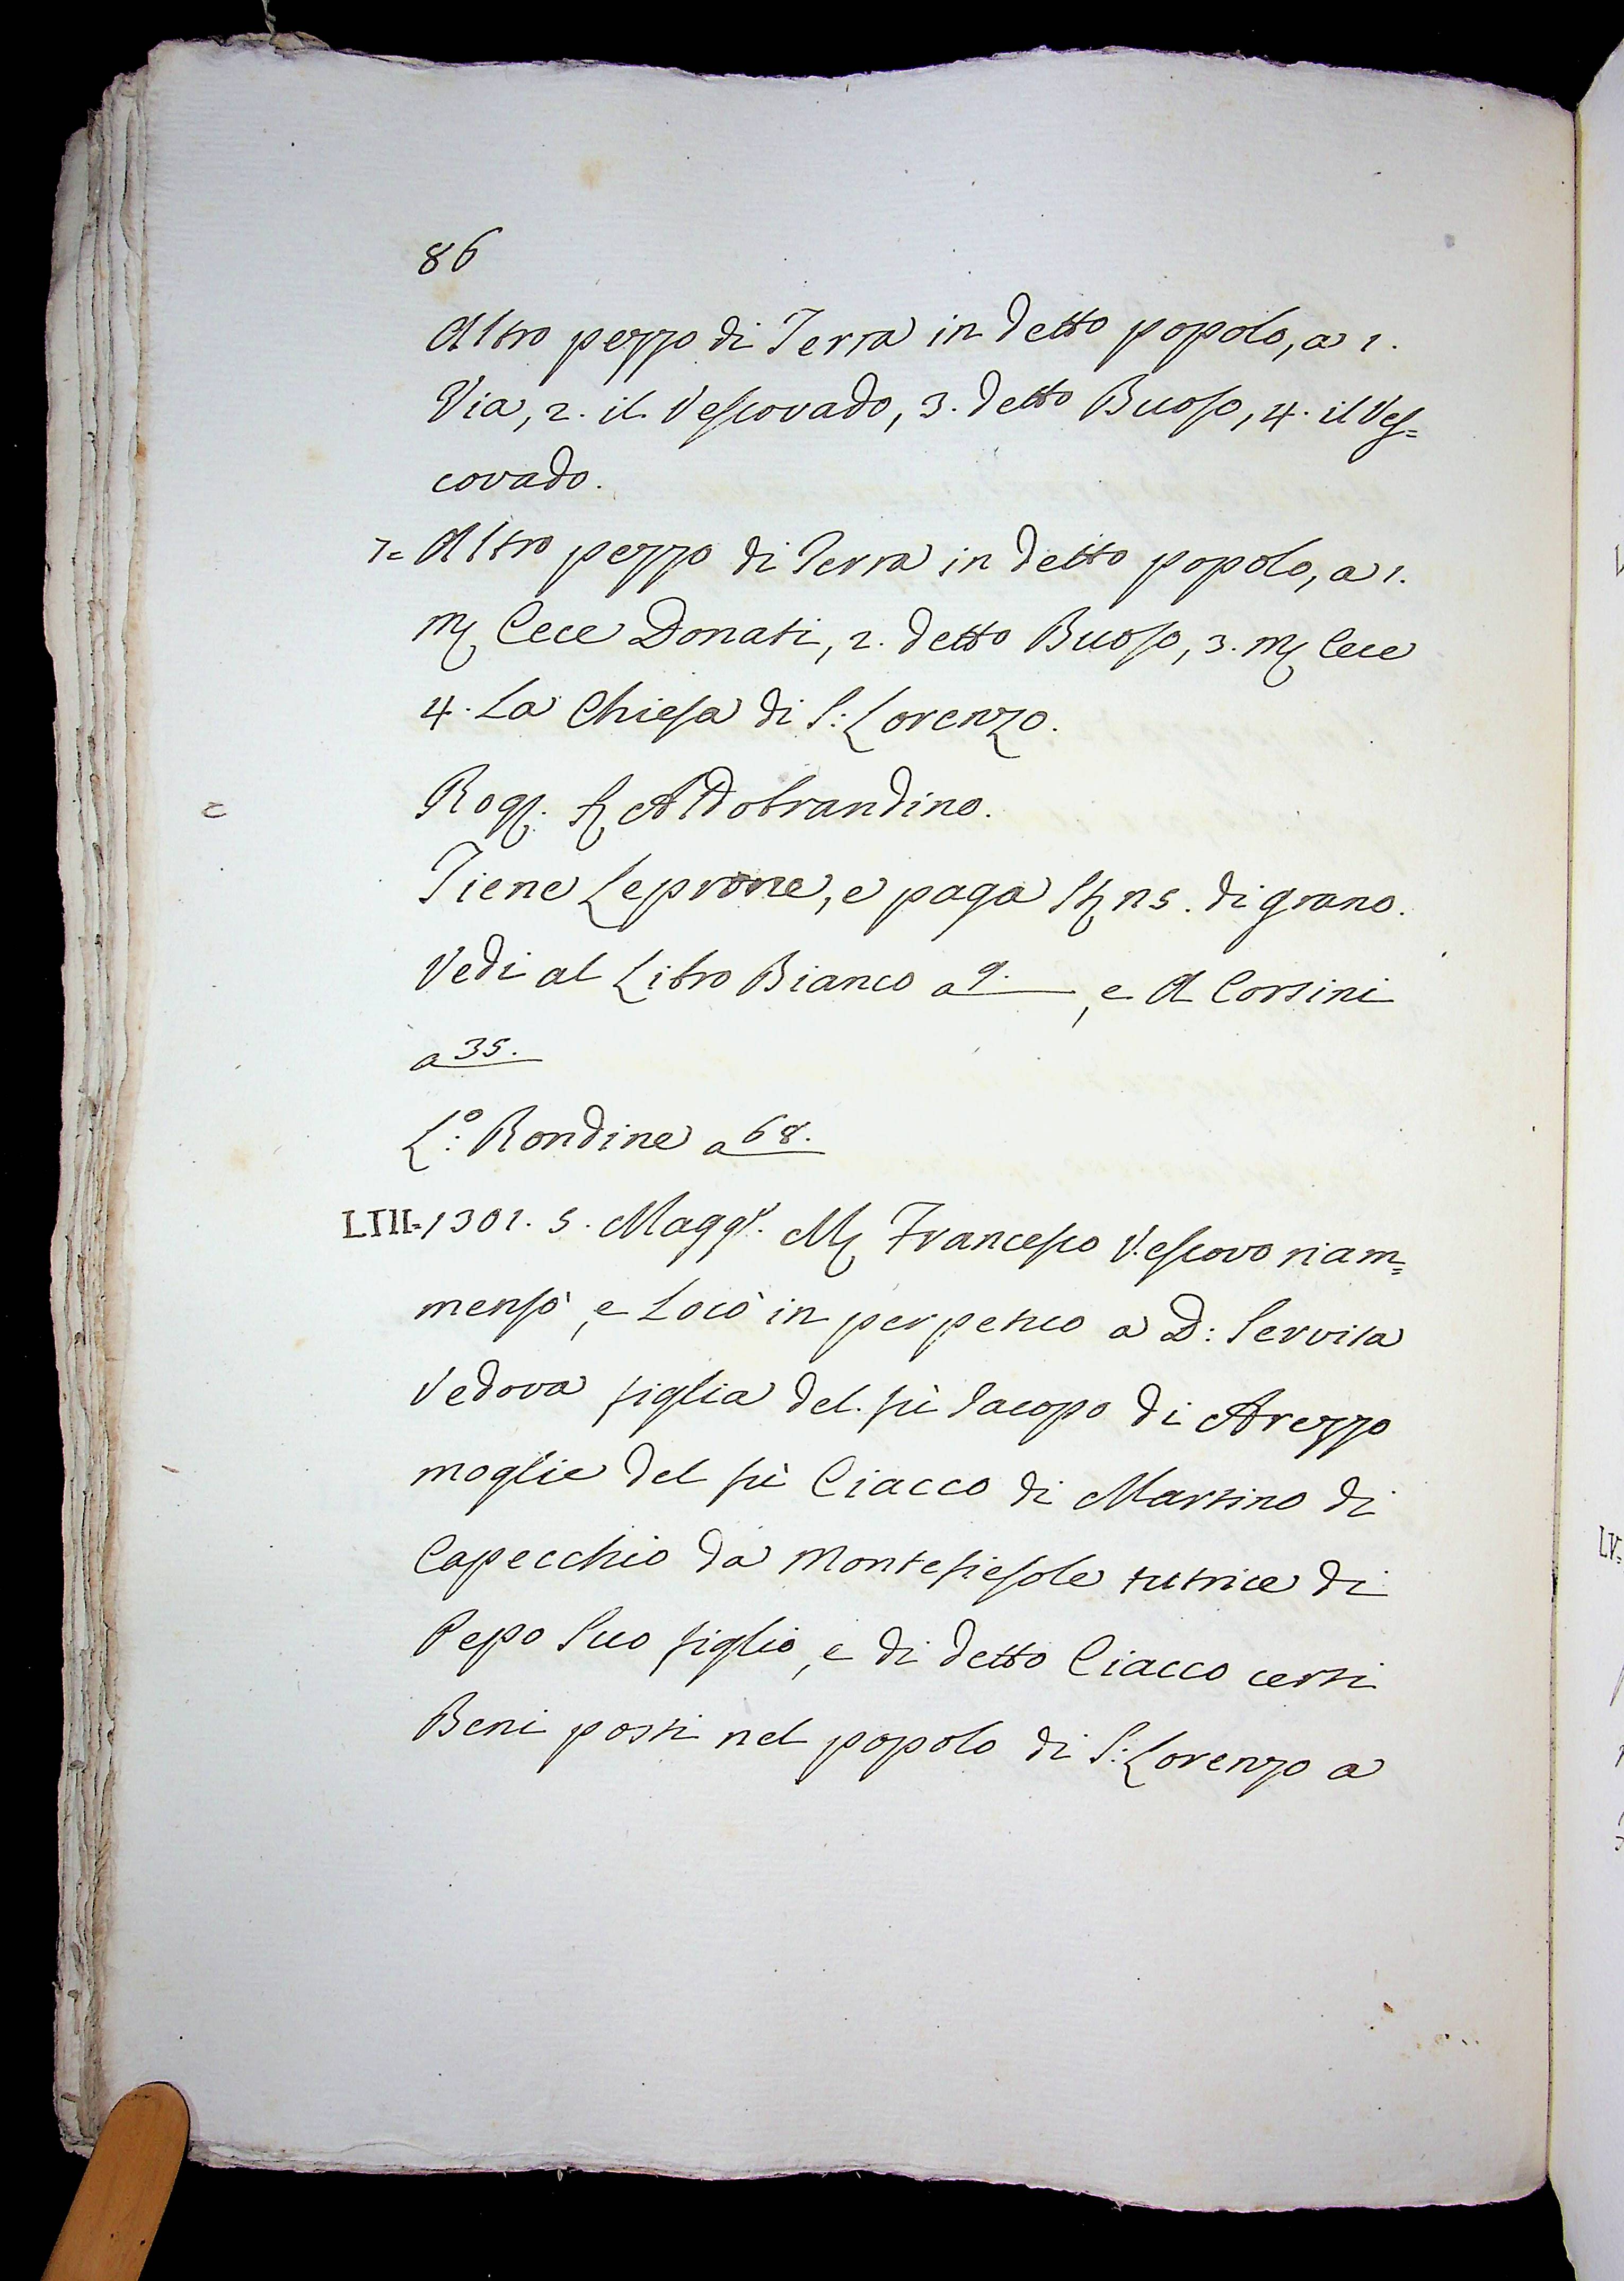 86
Altro pezzo di Terra in detto popolo, a 1.
Via, 2. il Vescovado, 3. detto Buoso, 4. il Ves=
covado.
7= Altro pezzo di Terra in detto popolo, a 1.
Mſ Cece Donati, 2. detto Buoso, 3. Mſ Cece
4. La Chiesa di S: Lorenzo.
Rog. Aldobrandino.
Tiene Leprone, e paga di grano.
Vedi al Libro Bianco a 9. , e A Corsini
a 35.
L.º: Rondine a 68.
LIII=1301. 5. Magg.º Mſ Francesco Vescovo riam=
mensò, e Locò in perpetuo a D: Servita
Vedova figlia del fù Jacopo di Arezzo
moglie del fù Ciacco di Martino di
Capecchio da Montefiesole tutrice di
Pepo Suo figlio, e di detto Ciacco certi
Beni posti nel popolo di S: Lorenzo a